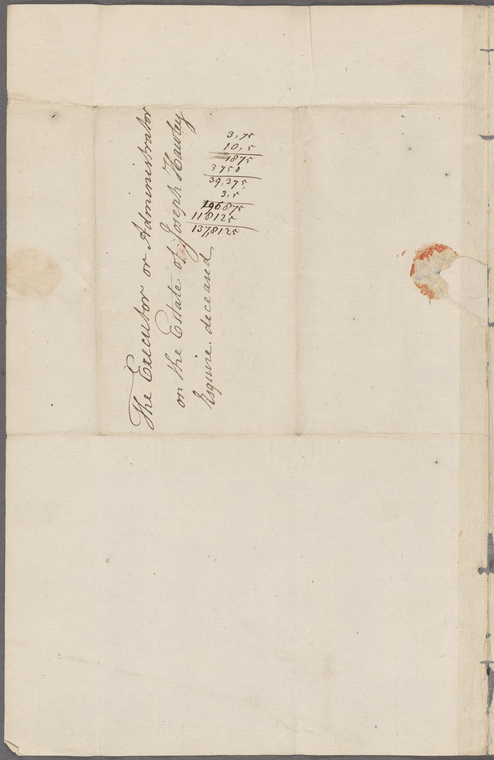 The Executor or Administrator
on the Estate of Joseph Hawley
Esquire deceased
3,75
10,5
1875
3750
39,375
3,5
196875
118125
137,8125